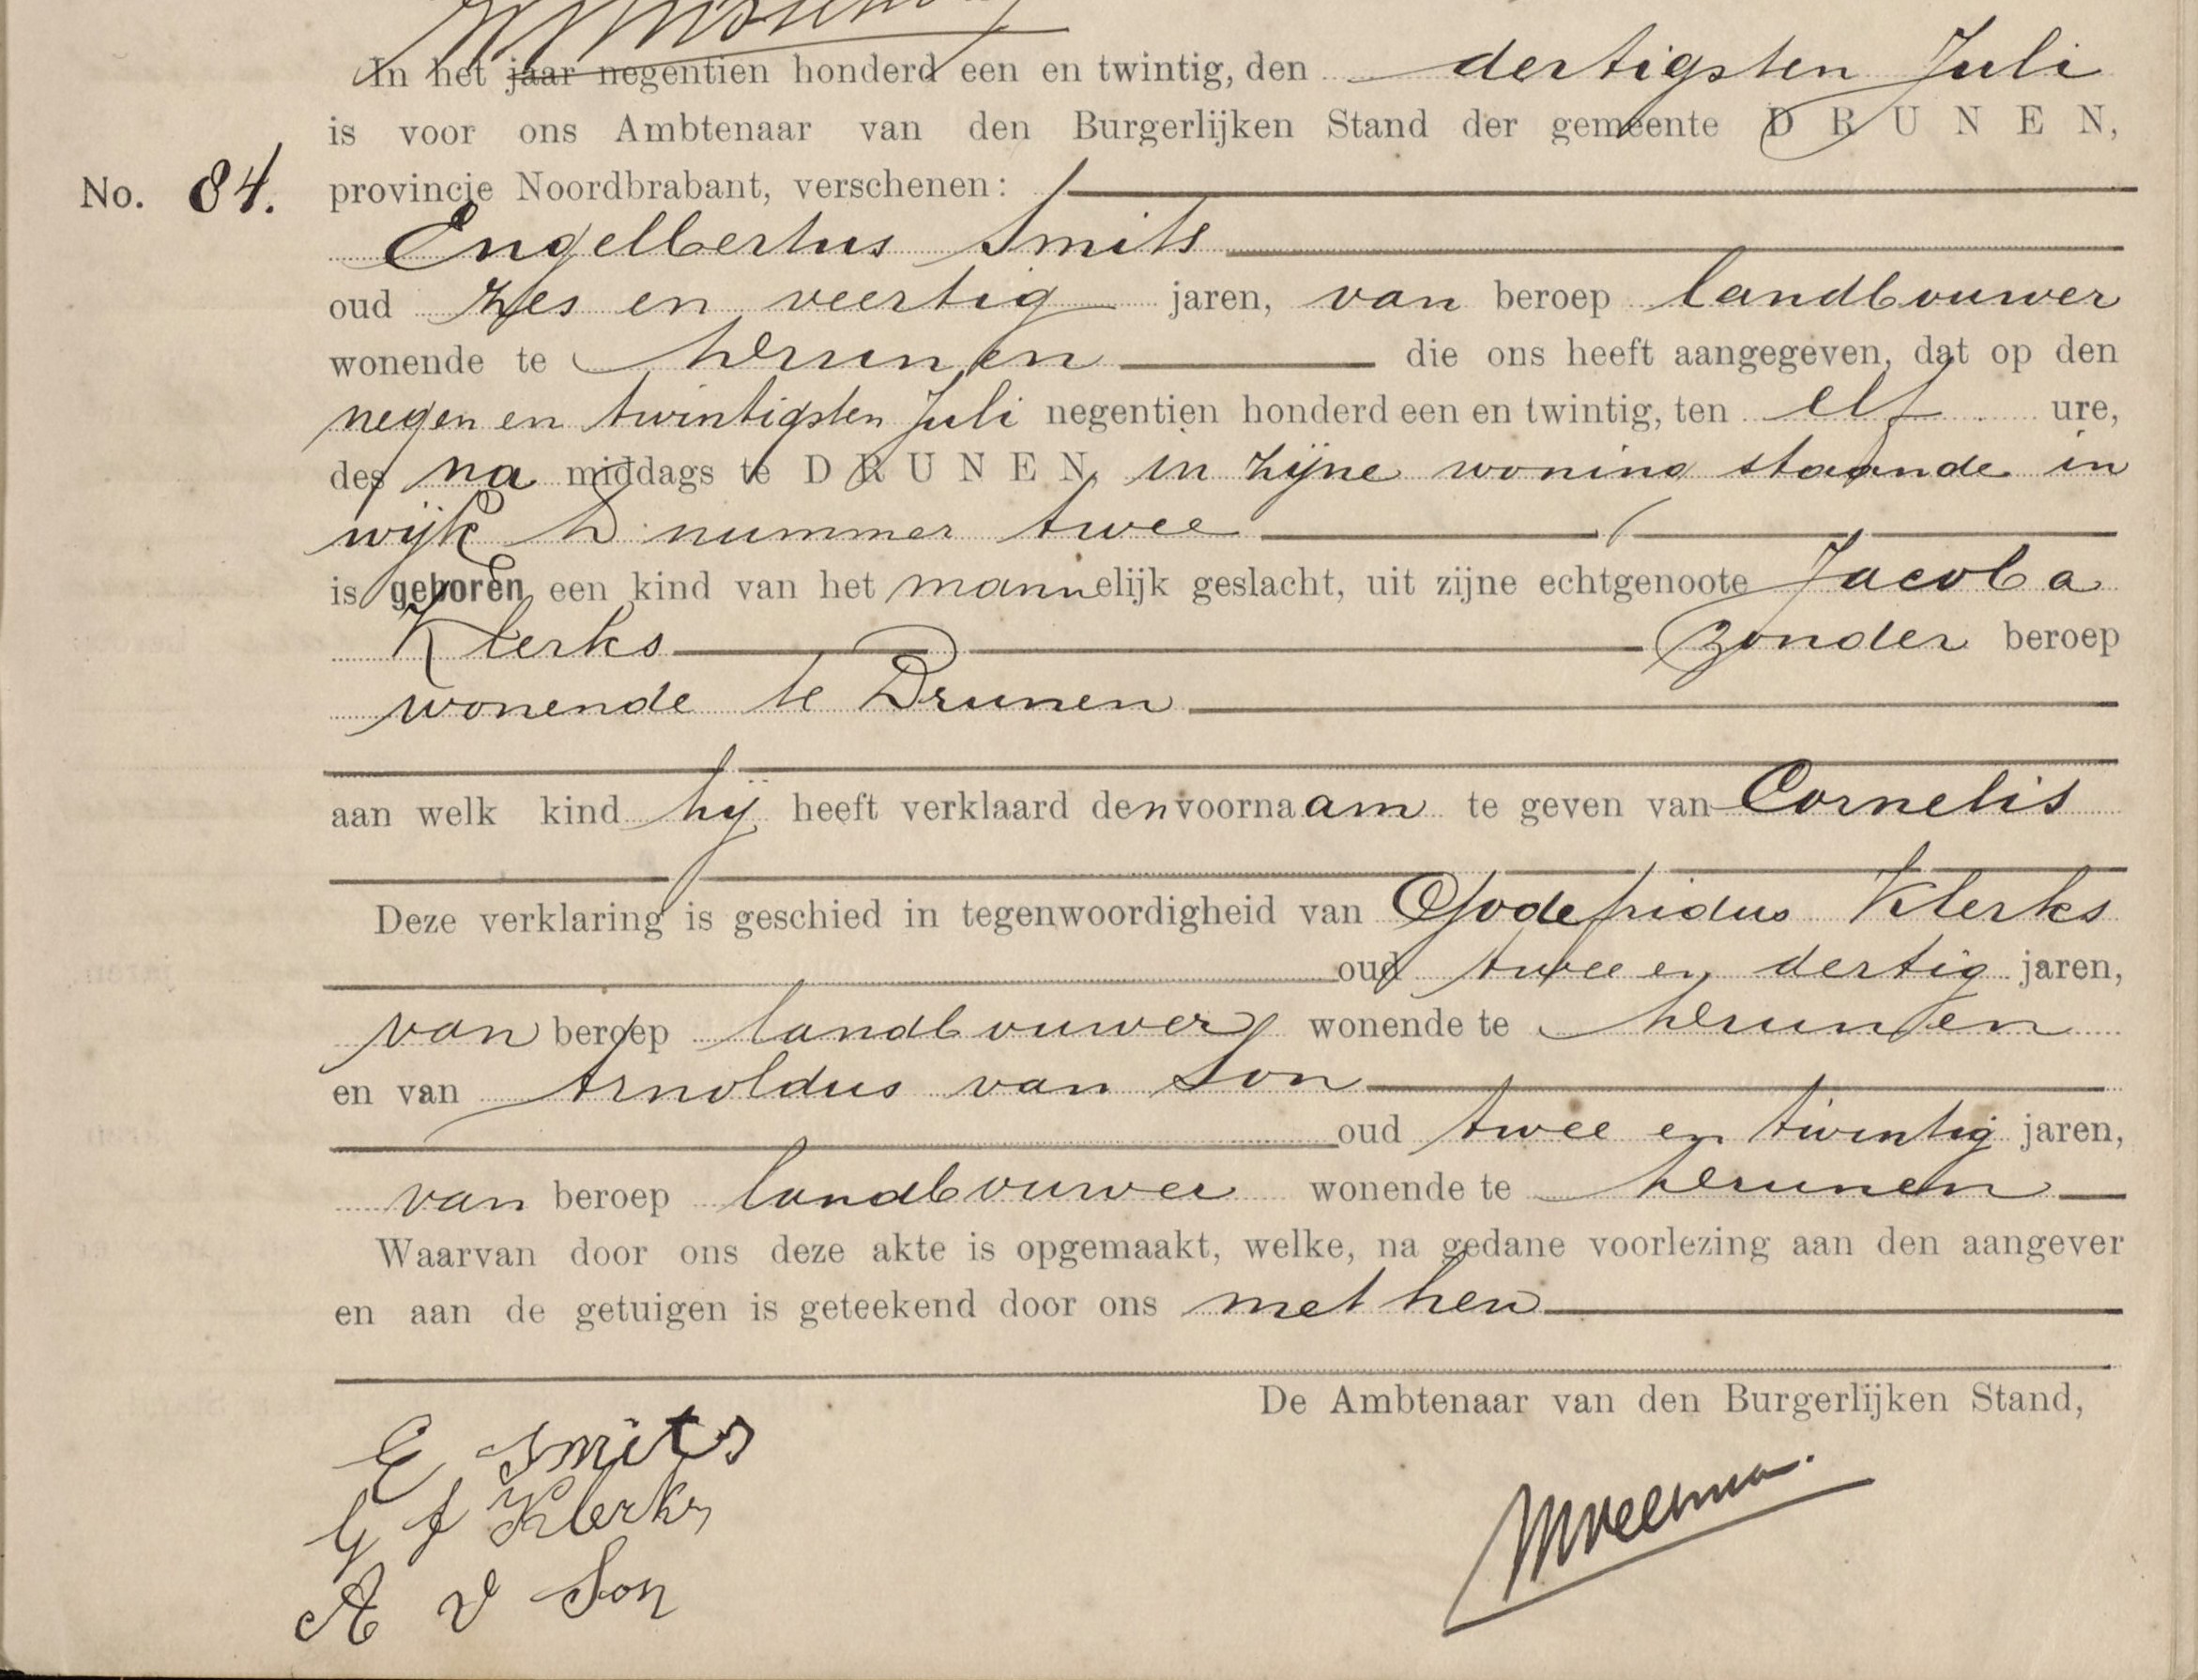 In het jaar negentien honderd een en twintig, den dertigsten Juli
is voor ons Ambtenaar van den Burgerlijken Stand der gemeente DRUNEN,
No. 84. provincie Noordbrabant, verschenen:
Engelbertus Smits
oud zes en veertig jaren, van beroep landbouwer
wonende te Drunen die ons heeft aangegeven, dat op den
negen en twintigsten Juli negentien honderd een en twintig, ten elf ure,
des na middags te DRUNEN, in zijne woning staande in
wijk D nummer twee
is geboren een kind van het mannelijk geslacht, uit zijne echtgenoote Jacoba
Klerks zonder beroep
wonende te Drunen
aan welk kind hij heeft verklaard den voornaam te geven van Cornelis
Deze verklaring is geschied in tegenwoordigheid van Godefridus Klerks
oud twee en dertig jaren,
van beroep landbouwer wonende te Drunen
en van Arnoldus van Son
oud twee en twintig jaren,
van beroep landbouwer wonende te Drunen
Waarvan door ons deze akte is opgemaakt, welke, na gedane voorlezing aan den aangever
en aan de getuigen is geteekend door ons met hen
De Ambtenaar van den Burgerlijken Stand,
E Smits
G J Klerks
A v Son